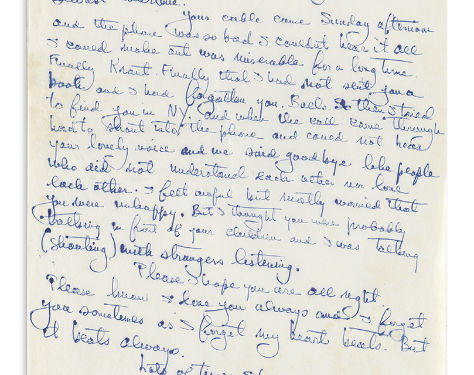 Your cable came Sunday afternoon
and the phone was so bad I couldn't hear it all
I could make out was miserable for a long time.
Finally Knout. Finally that I had not sent you a
book and I had forgotten you. Back I then tried
to find you in N.Y. and when the call came through
had to shout into the phone and could not hear
your lovely voice and we said goodbye like people
who did not understand each other nor love
each other. I feel awful but mostly worried that
you were unhappy. But I thought you were probably
talking in front of your children and I was talking
(shouting) with strangers listening.
Please I hope you are all right.
Please know I love you always and I forget
you sometimes as I forget my heart beats. But
it beats always.